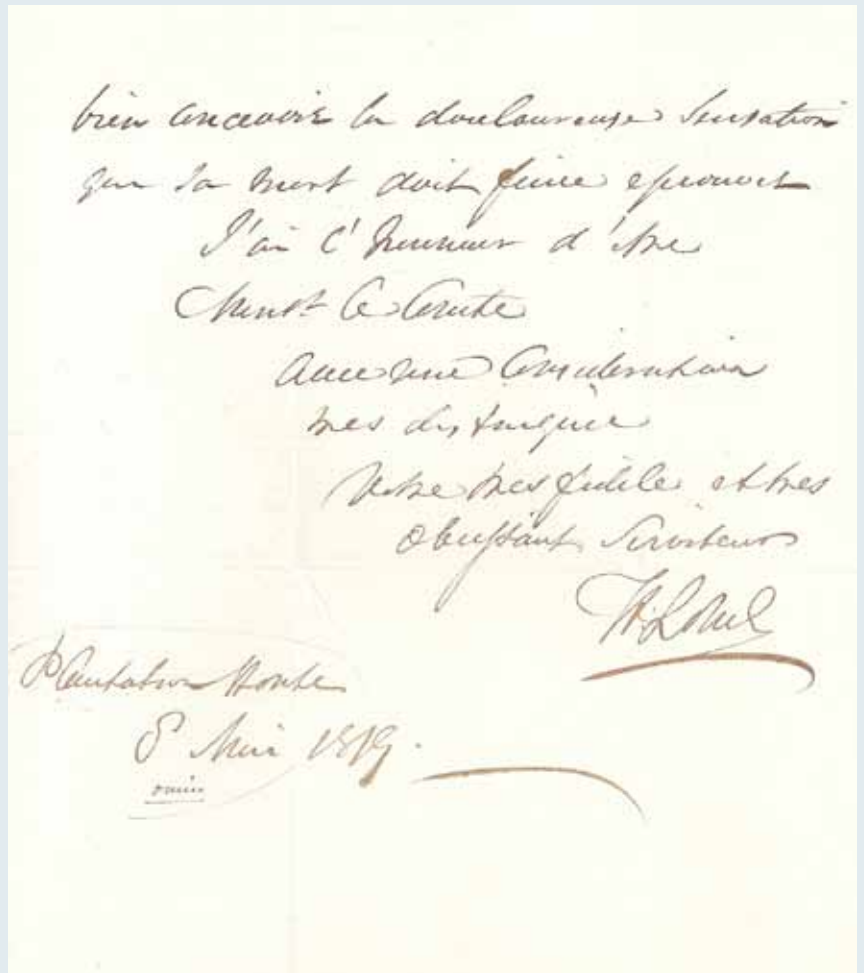 bien concevoir la douloureuse Sensation
que sa mort doit faire eprouver
J'ai l'honneur d'etre
Monsr. le Comte
avec une Consideration
tres distinguée
Votre tres fidele et tres
Obeissant Serviteur
H. Lowe
Plantation House
8 Mai 1819.